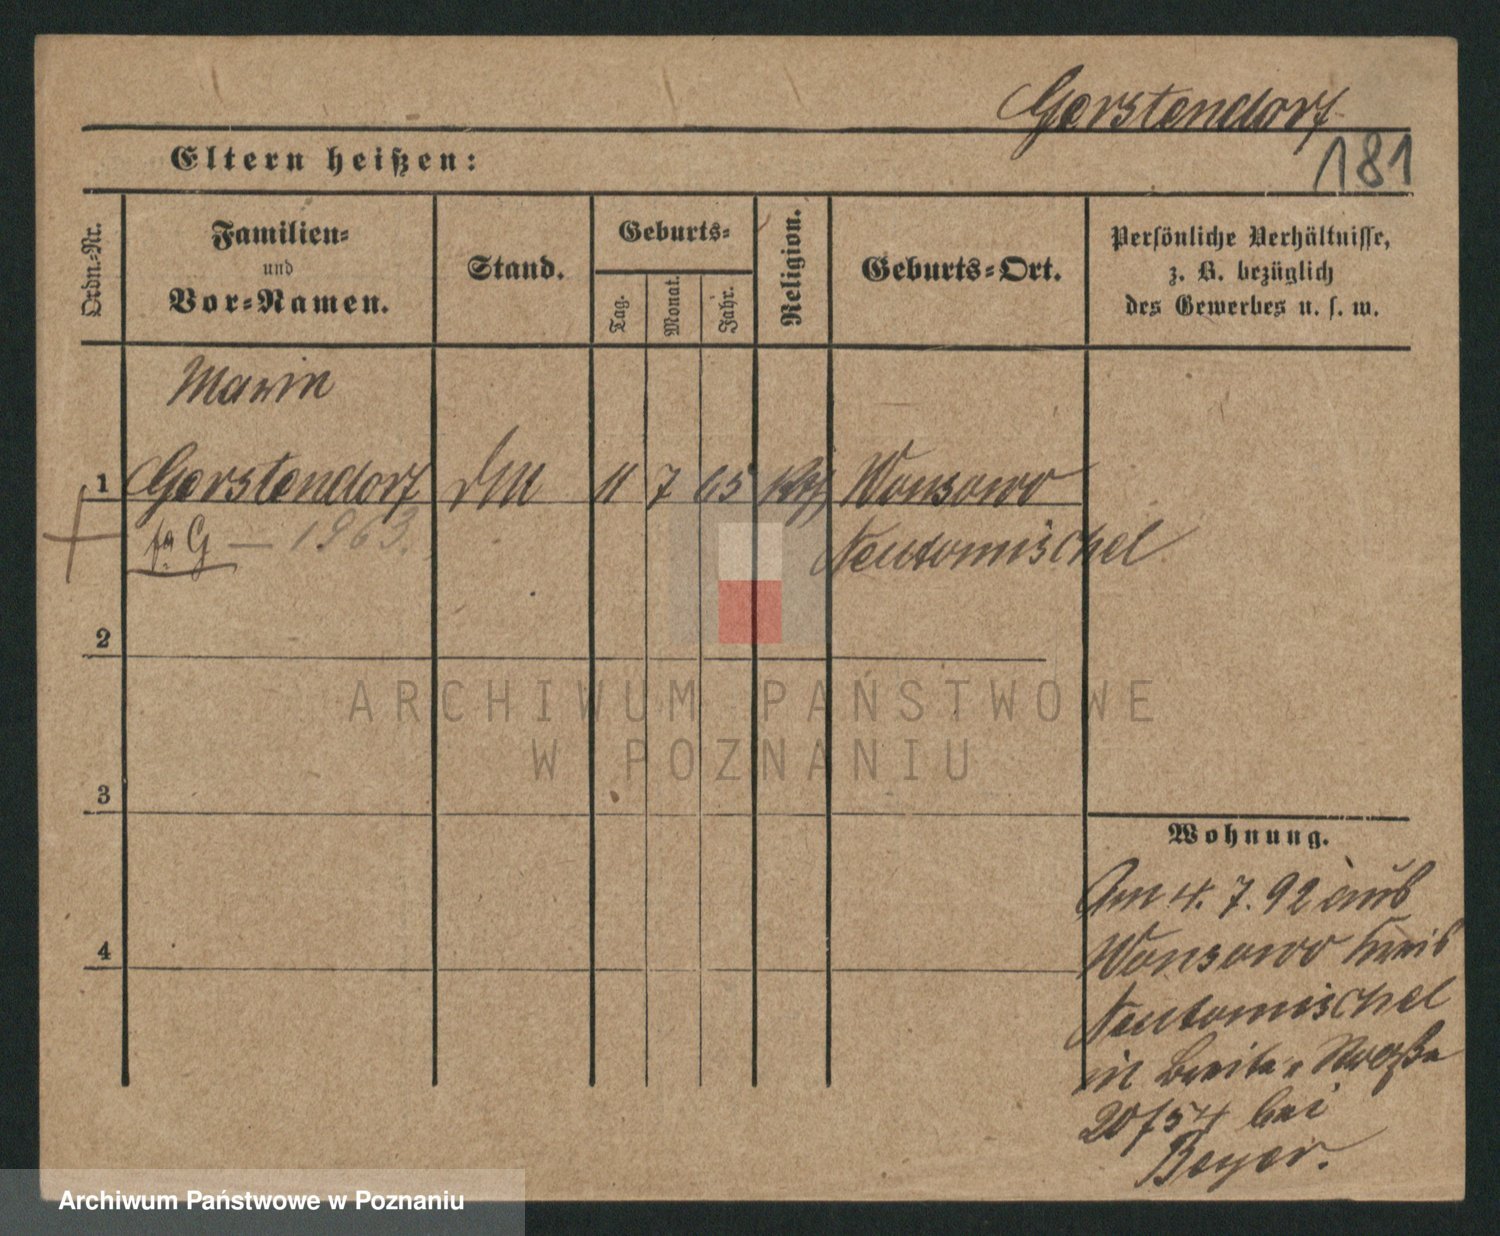 Gerstendorf
181
Eltern heißen:
Ordn.-Nr.
Familien-
und
Vor-Namen.
Stand.
Geburts-
Tag.
Monat.
Jahr.
Religion.
Geburts-Ort.
Persönliche Verhältnisse,
z. B. bezüglich
des Gewerbes u. s. w.
Marie
1 Gerstendorf 11 7 65 Wonsowo
G — 1963.
Neutomischel
2
3
4
ARCHIWUM PAŃSTWOWE
W POZNANIU
Wohnung.
Am 4. 7. 92 aus
Wonsowo Kreis
Neutomischel
in Breite Straße
20/54 bei
Beyer.
Archiwum Państwowe w Poznaniu